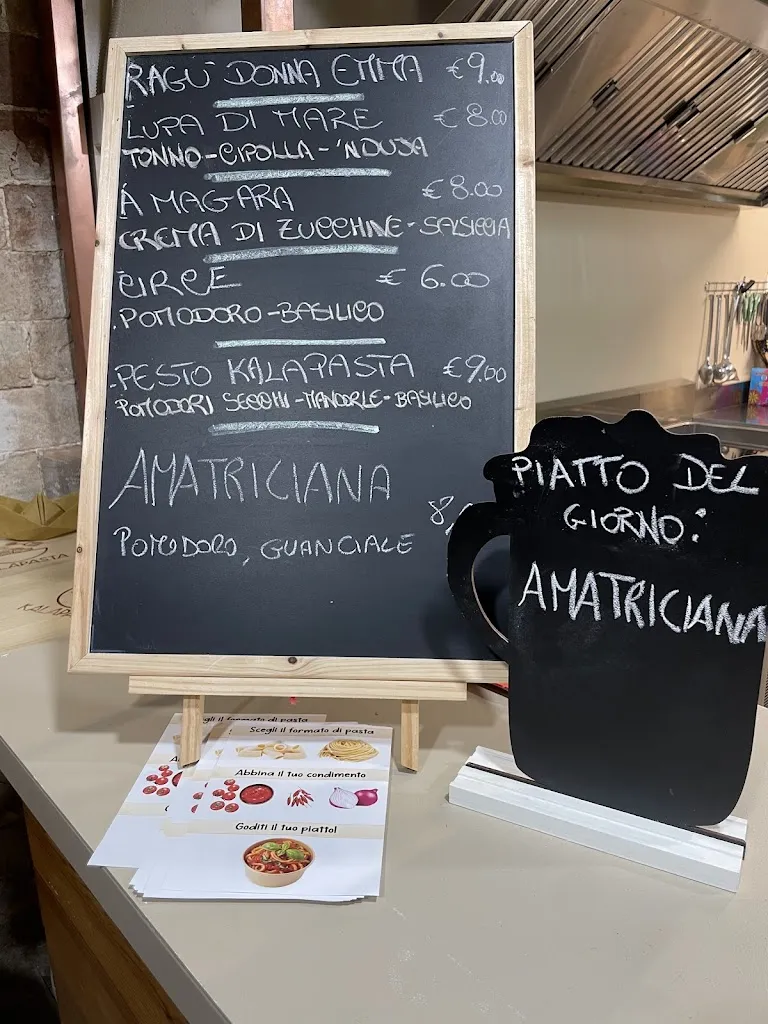 RAGU' DONNA EMMA €9.00
LUPA DI MARE €8.00
TONNO-CIPOLLA-'NDUJA
A MAGARA €8.00
CREMA DI ZUCCHINE-SALSICCIA
CIRCE € 6.00
.POMODORO-BASILICO
PESTO KALAPASTA €9.00
POMODORI SECCHI-MANDORLE-BASILICO
AMATRICIANA
8,
POMODORO, GUANCIALE
PIATTO DEL
GIORNO:
AMATRICIANA
Scegli il formato di pasta
Scegli il formato di pasta
Abbina il tuo condimento
Goditi il tuo piatto!